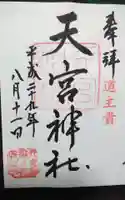 奉拝
道主貴
天宮神社
平成二十九年
八月十一日